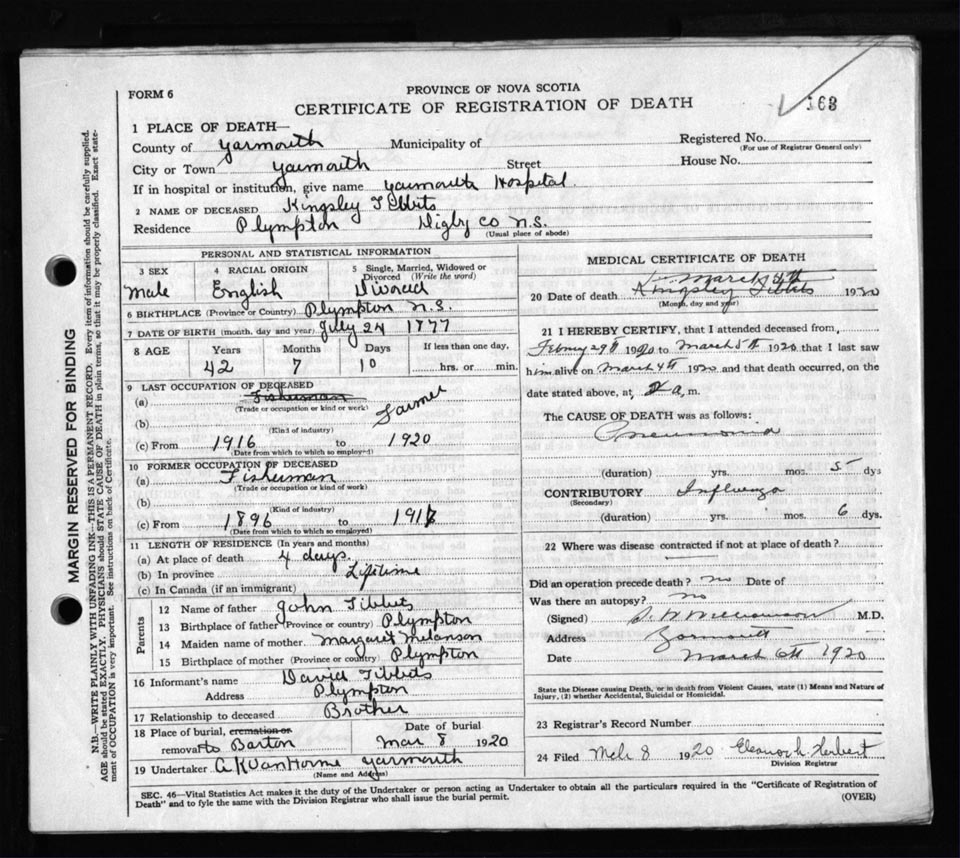 PROVINCE OF NOVA SCOTIA
FORM 6
CERTIFICATE OF REGISTRATION OF DEATH
163
1 PLACE OF DEATH—
County of Yarmouth Municipality of
Registered No.
(For use of Registrar General only)
City or Town Yarmouth Street House No.
If in hospital or institution, give name Yarmouth Hospital.
2 NAME OF DECEASED Kingsley Tibbits
Residence Plympton Digby Co N.S.
(Usual place of abode)
PERSONAL AND STATISTICAL INFORMATION
3 SEX 4 RACIAL ORIGIN 5 Single, Married, Widowed or Divorced (Write the word)
Male English Divorced
6 BIRTHPLACE (Province or Country) Plympton N.S.
7 DATE OF BIRTH (month, day and year) July 24 1877
8 AGE Years Months Days If less than one day,
42 7 10 hrs. or min.
9 LAST OCCUPATION OF DECEASED
(a) Fisherman
(Trade or occupation or kind or work)
(b) Farmer
(Kind of industry)
(c) From 1916 to 1920
(Date from which to which so employed)
10 FORMER OCCUPATION OF DECEASED
(a) Fisherman
(Trade or occupation or kind of work)
(b)
(Kind of Industry)
(c) From 1896 to 191
(Date from which to which so employed)
11 LENGTH OF RESIDENCE (In years and months)
(a) At place of death 4 days.
(b) In province Lifetime
(c) In Canada (if an immigrant)
Parents
12 Name of father John Tibbits
13 Birthplace of father (Province or country) Plympton
14 Maiden name of mother. Margaret Melanson
15 Birthplace of mother (Province or country) Plympton
16 Informant's name David Tibbits
Address Plympton
17 Relationship to deceased Brother
18 Place of burial, cremation or Date of burial
removal to Barton Mar 8 1920
19 Undertaker A K VanHorne Yarmouth
(Name and Address)
MEDICAL CERTIFICATE OF DEATH
March 4th
20 Date of death Kingsley Tibbits 1920
(Month, day and year)
21 I HEREBY CERTIFY, that I attended deceased from,
Febury 29th 1920 to March 5th 1920 that I last saw
him alive on March 4th 1920 and that death occurred, on the
date stated above, at, a, m.
The CAUSE OF DEATH was as follows:
Pneumonia
(duration) yrs. mos. 5 dys
CONTRIBUTORY Influenza
(Secondary)
(duration) yrs. mos. 6 dys.
22 Where was disease contracted if not at place of death?
Did an operation precede death? no Date of
Was there an autopsy? no
(Signed) M.D.
Address Yarmouth
Date March 6th 1920
State the Disease causing Death, or in death from Violent Causes, state (1) Means and Nature of
Injury, (2) whether Accidental, Suicidal or Homicidal.
23 Registrar's Record Number
24 Filed Mch 8 1920 Eleanor L. Herbert
Division Registrar
SEC. 46—Vital Statistics Act makes it the duty of the Undertaker or person acting as Undertaker to obtain all the particulars required in the "Certificate of Registration of
Death" and to fyle the same with the Division Registrar who shall issue the burial permit.
(OVER)
MARGIN RESERVED FOR BINDING
N.B.—WRITE PLAINLY WITH UNFADING INK—THIS IS A PERMANENT RECORD. Every item of information should be carefully supplied.
AGE should be stated EXACTLY. PHYSICIANS should STATE CAUSE OF DEATH in plain terms, so that it may be properly classified. Exact state-
ment of OCCUPATION is very important. See instructions on back of Certificate.